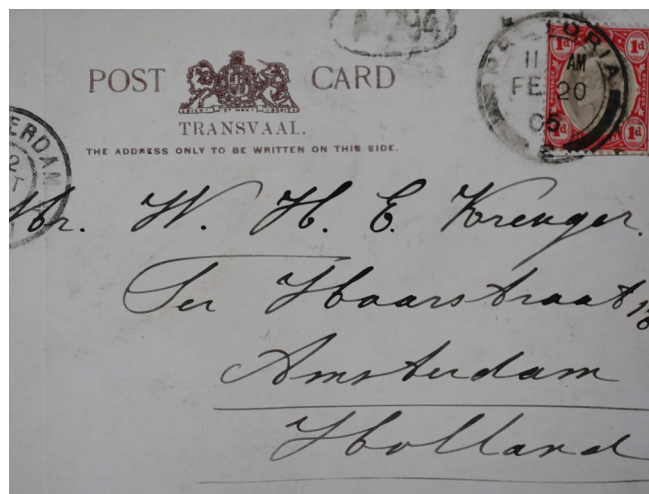 A 294
POST CARD
TRANSVAAL.
THE ADDRESS ONLY TO BE WRITTEN ON THIS SIDE.
PRETORIA
11 AM
FE 20
05
1d 1d
1d 1d
ERDAM
2
Mr. W. H. E. Kreuger.
Ter Haarstraat
Amsterdam
Holland